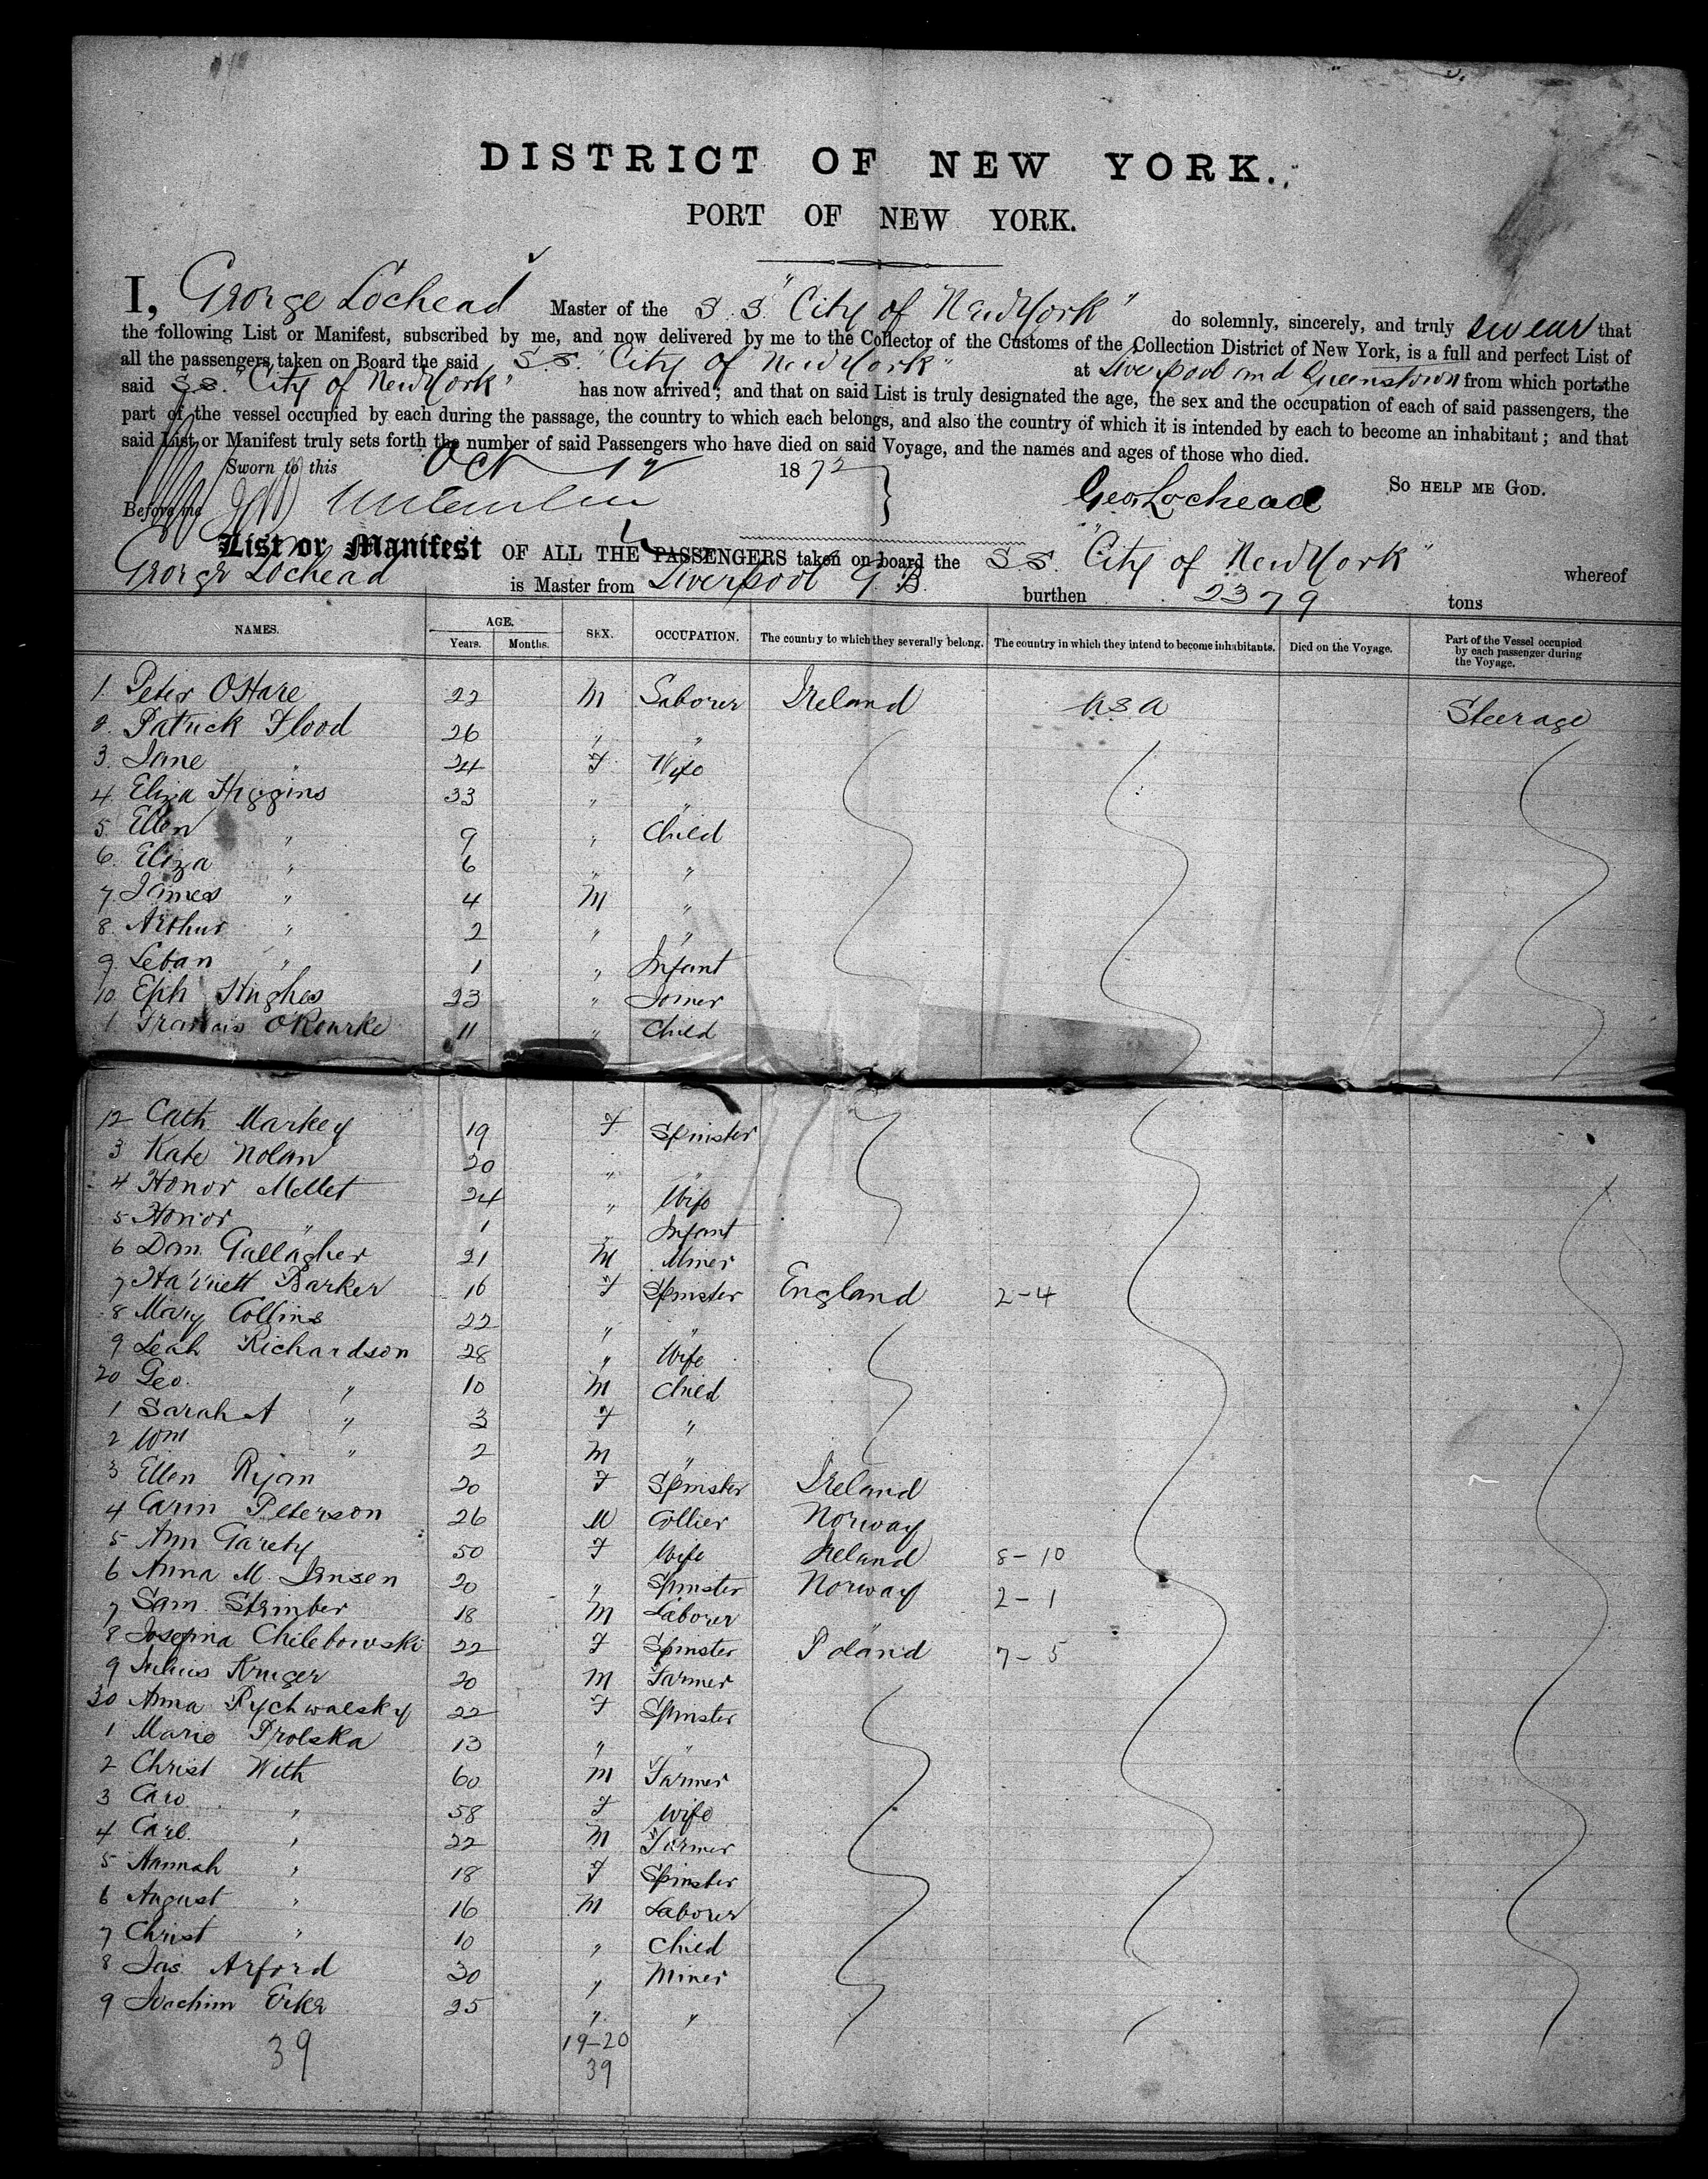 DISTRICT OF NEW YORK.
PORT OF NEW YORK.
I, George Lochead Master of the S.S. "City of New York" do solemnly, sincerely, and truly swear that
the following List or Manifest, subscribed by me, and now delivered by me to the Collector of the Customs of the Collection District of New York, is a full and perfect List of
all the passengers taken on Board the said S.S. "City of New York" at Liverpool and Queenstown from which ports the
said S.S. "City of New York" has now arrived; and that on said List is truly designated the age, the sex and the occupation of each of said passengers, the
part of the vessel occupied by each during the passage, the country to which each belongs, and also the country of which it is intended by each to become an inhabitant; and that
said List or Manifest truly sets forth the number of said Passengers who have died on said Voyage, and the names and ages of those who died.
Sworn to this Oct 12 1872 So HELP ME GOD.
Before me Geo. Lochead
List or Manifest OF ALL THE PASSENGERS taken on board the S.S. "City of New York" whereof
George Lochead is Master from Liverpool G.B. burthen 2379 tons
NAMES. AGE. Years. Months. SEX. OCCUPATION. The country to which they severally belong. The country in which they intend to become inhabitants. Died on the Voyage. Part of the Vessel occupied by each passenger during the Voyage.
1. Peter O'Hare 22 M Laborer Ireland USA Steerage
2. Patrick Flood 26 " "
3. Jane " 24 F Wife
4. Eliza Higgins 33 " "
5. Ellen " 9 " Child
6. Eliza " 6 " "
7. James " 4 M "
8. Arthur " 2 " "
9. Leban " 1 " Infant
10. Eph Hughes 23 " Joiner
1 Francis O'Rourke 11 " Child
12 Cath. Markey 19 F Spinster
3 Kate Nolan 20 " "
4 Honor Mellet 24 " Wife
5 Honor " 1 " Infant
6 Dom. Gallagher 21 M Miner
7 Harriett Barker 16 F Spinster England 2-4
8 Mary Collins 22 " "
9 Leah Richardson 28 " Wife
20 Geo. " 10 M Child
1 Sarah A " 3 F "
2 Wm " 2 M "
3 Ellen Ryan 20 F Spinster Ireland
4 Carin Peterson 26 M Collier Norway
5 Ann Garety 50 F Wife Ireland 8-10
6 Anna M. Jensen 20 " Spinster Norway 2-1
7 Sam. Stember 18 M Laborer "
8 Josefina Chilebowski 22 F Spinster Poland 7-5
9 Julius Kruger 20 M Farmer
30 Anna Rychwalsky 22 F Spinster
1 Marie Prolska 13 " "
2 Christ With 60 M Farmer
3 Caro " 58 F Wife
4 Carl " 22 M Farmer
5 Hannah " 18 F Spinster
6 August " 16 M Laborer
7 Christ " 10 " Child
8 Jas. Arford 30 " Miner
9 Joachim Erke 25 " "
39 19-20
39